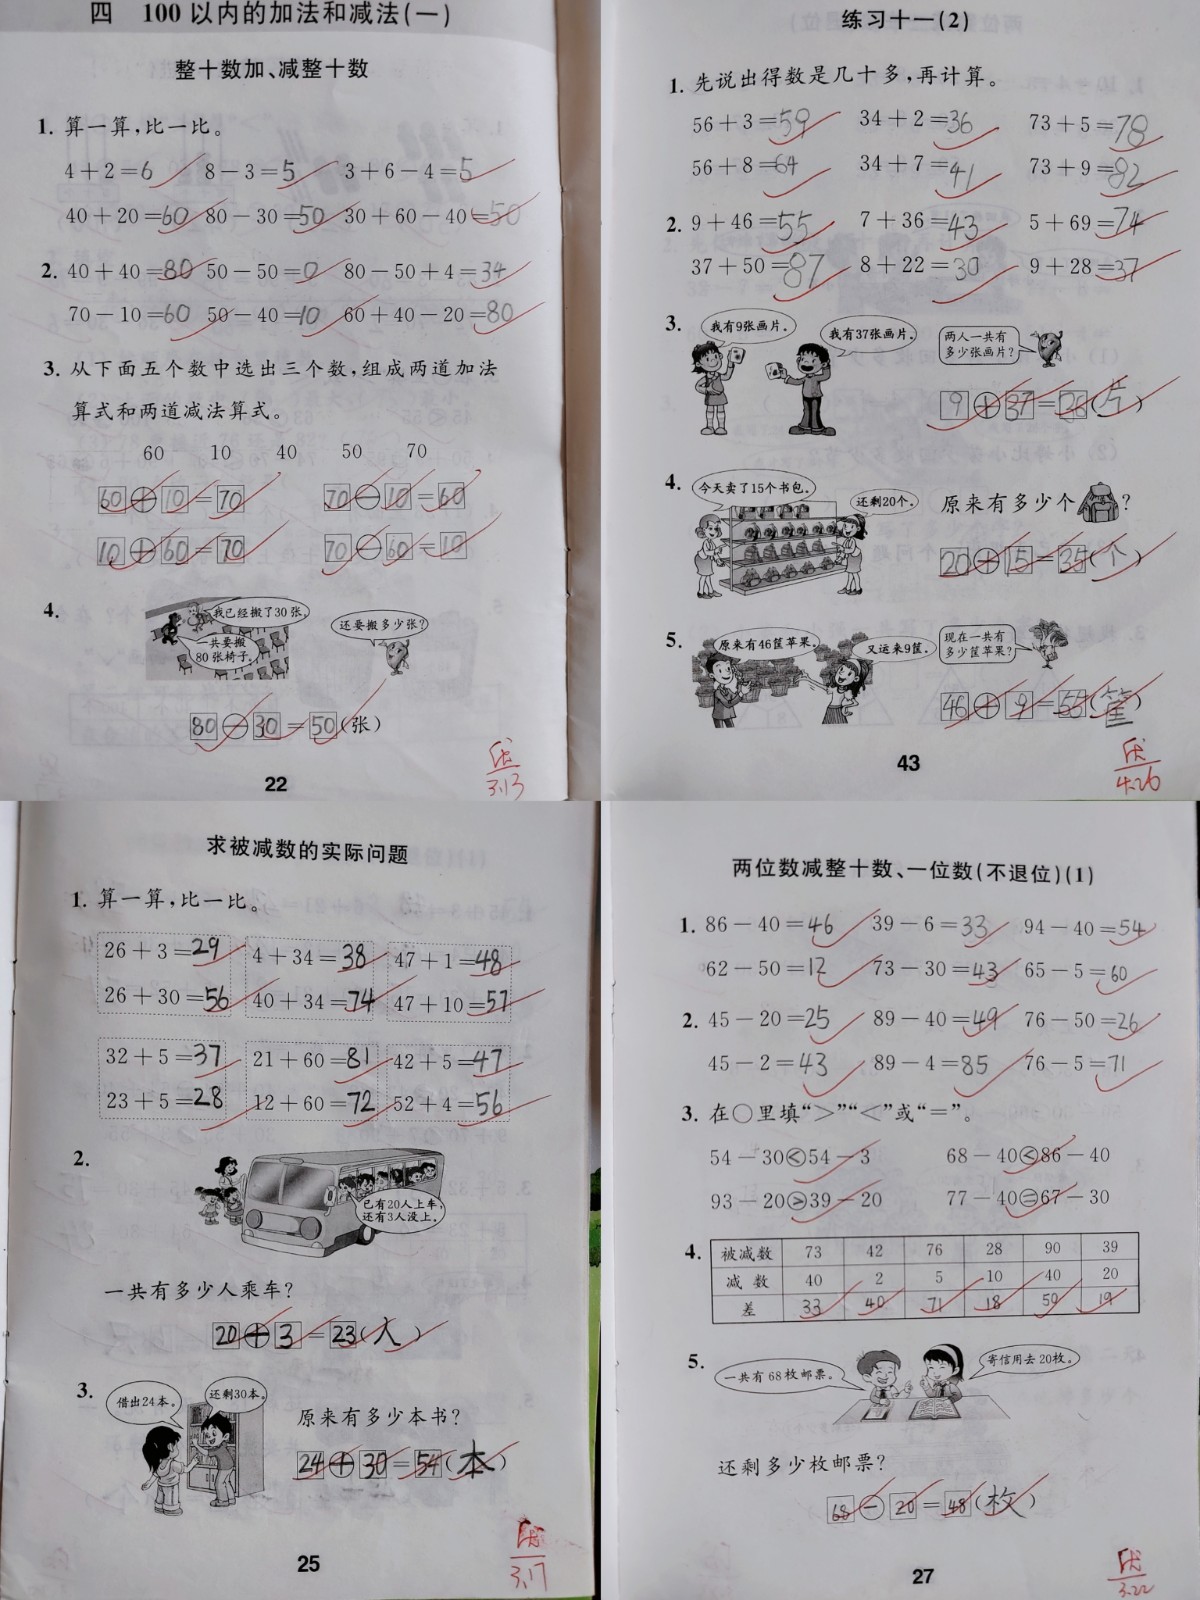 四 100以内的加法和减法(一)
整十数加、减整十数
1. 算一算,比一比。
4+2=6 8-3=5 3+6-4=5
40+20=60 80-30=50 30+60-40=50
2. 40+40=80 50-50=0 80-50+4=34
70-10=60 50-40=10 60+40-20=80
3. 从下面五个数中选出三个数,组成两道加法
算式和两道减法算式。
60 10 40 50 70
60+10=70 70-10=60
10+60=70 70-60=10
4.
我已经搬了30张。
一共要搬
80张椅子。
还要搬多少张?
80-30=50(张)
22
优
3.13
练习十一(2)
1. 先说出得数是几十多,再计算。
56+3=59 34+2=36 73+5=78
56+8=64 34+7=41 73+9=82
2. 9+46=55 7+36=43 5+69=74
37+50=87 8+22=30 9+28=37
3.
我有9张画片。
我有37张画片。
两人一共有
多少张画片?
9+37= (片)
4.
今天卖了15个书包。
还剩20个。
原来有多少个 ?
20+15=35(个)
5.
原来有46筐苹果。
又运来9筐。
现在一共有
多少筐苹果?
46+9=55(筐)
43
优
4.26
求被减数的实际问题
1. 算一算,比一比。
26+3=29 4+34=38 47+1=48
26+30=56 40+34=74 47+10=57
32+5=37 21+60=81 42+5=47
23+5=28 12+60=72 52+4=56
2.
已有20人上车,
还有3人没上。
一共有多少人乘车?
20+3=23(人)
3.
借出24本。
还剩30本。
原来有多少本书?
24+30=54(本)
25
优
3.17
两位数减整十数、一位数(不退位)(1)
1. 86-40=46 39-6=33 94-40=54
62-50=12 73-30=43 65-5=60
2. 45-20=25 89-40=49 76-50=26
45-2=43 89-4=85 76-5=71
3. 在○里填“>”“<”或“=”。
54-30<54-3 68-40<86-40
93-20>39-20 77-40=67-30
4.
被减数 73 42 76 28 90 39
减 数 40 2 5 10 40 20
差 33 40 71 18 50 19
5.
一共有68枚邮票。
寄信用去20枚。
还剩多少枚邮票?
68-20=48(枚)
27
优
3.22